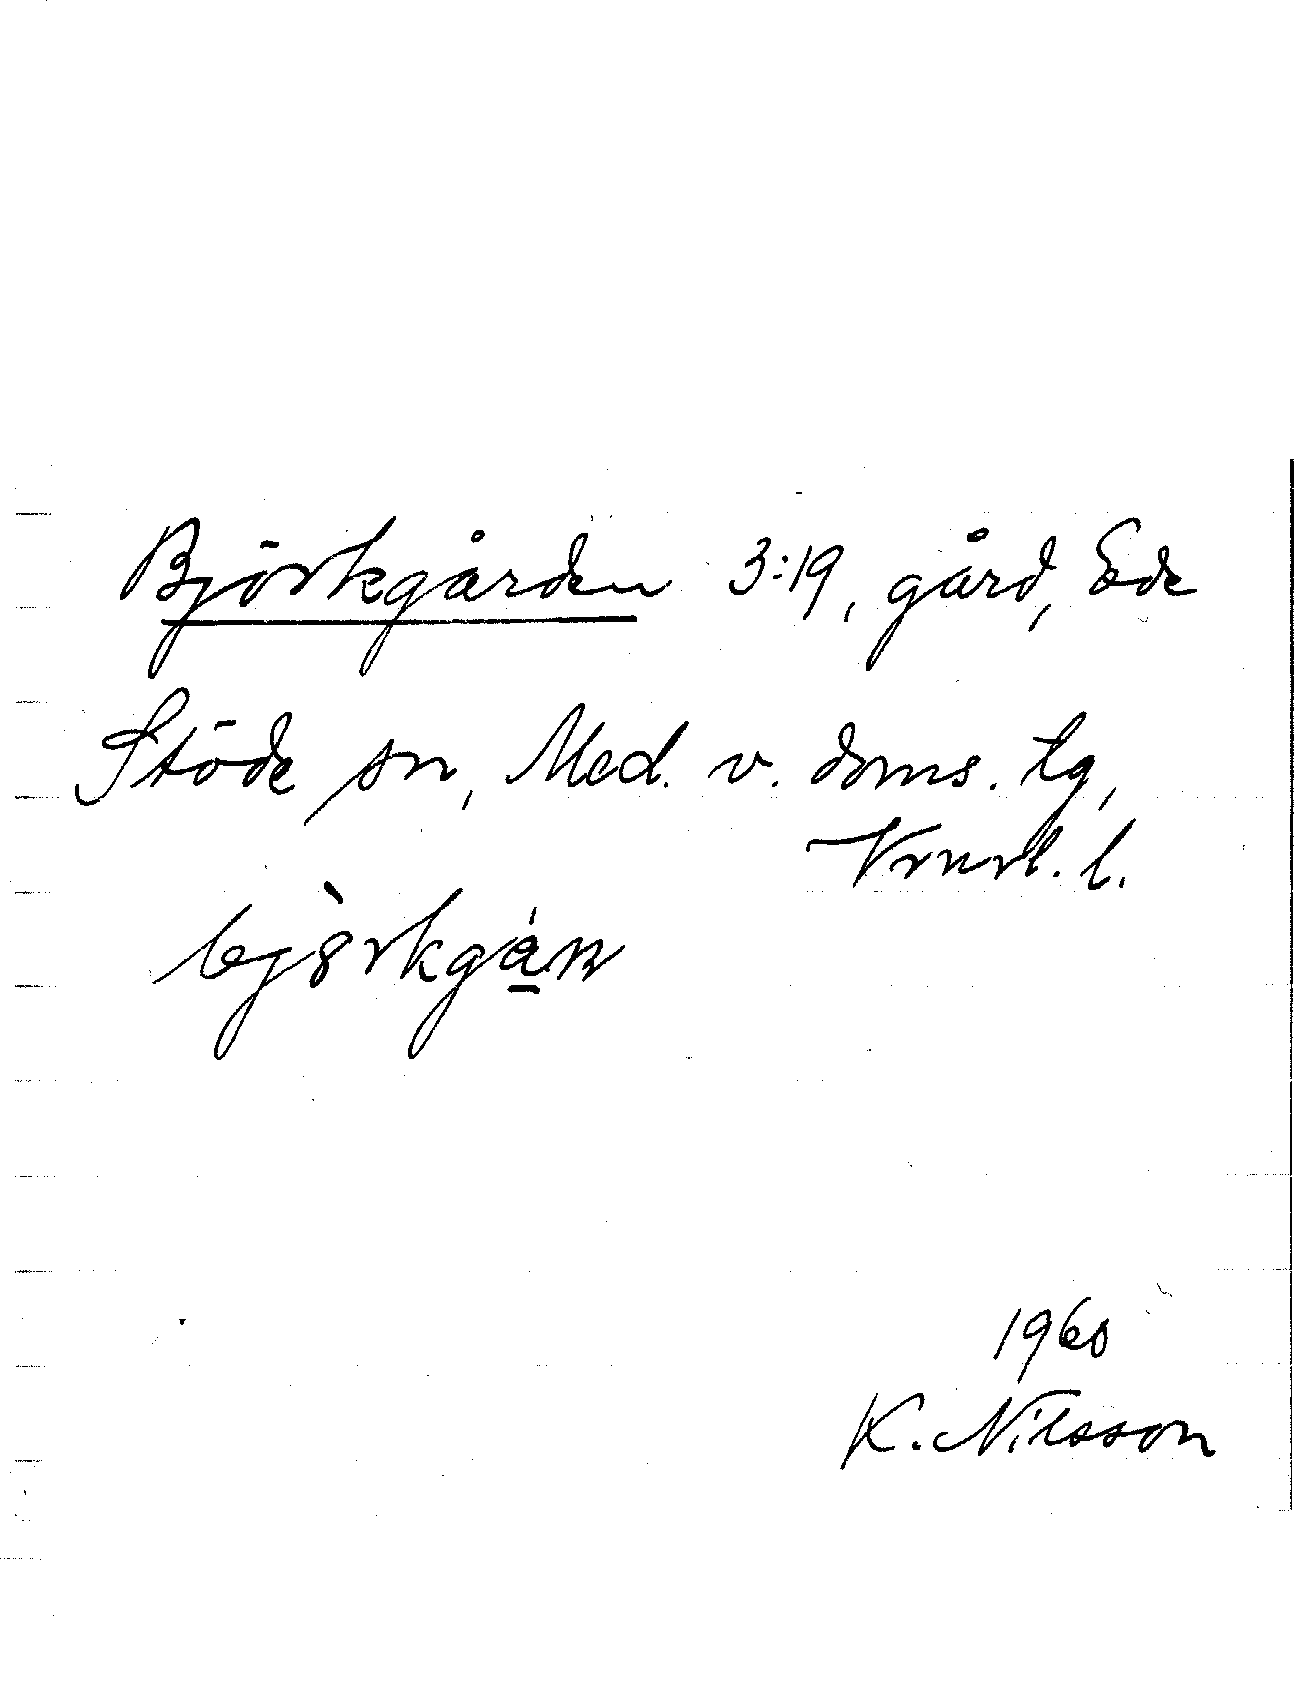 Björkgården 3:19, gård, Ede
Stöde sn, Med. v. doms. tg,
Vrnrl. l.
1960
K. Nilsson